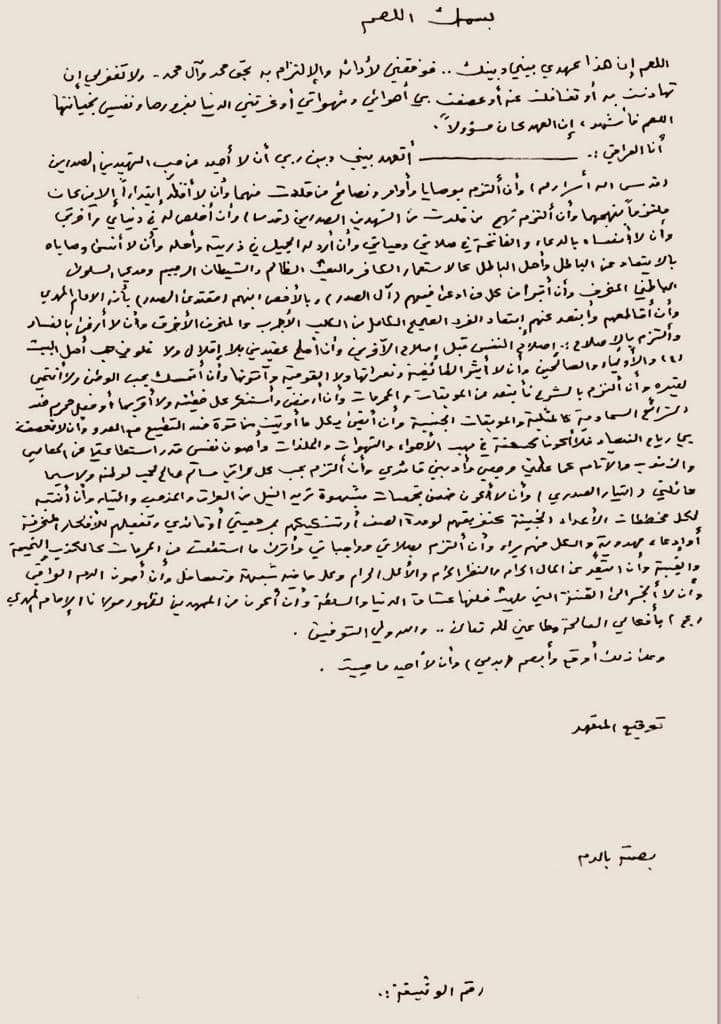 بسمك اللهم
اللهم إن هذا عهدي بيني وبينك .. فوفقني لأدائه والإلتزام به بحق محمد وآل محمد - ولا تغفر لي إن
تهاونت به أو تغافلت عنه أو عصفت بي أهوائي وشهواتي أو غرتني الدنيا بغرورها ونفسي بخيانتها
اللهم فأشهد ، إن العهد كان مسؤولاً .
أنا العراقي :. ــــــــــــ أتعهد بيني وبين ربي أن لا أحيد عن حب الشهيدين الصدرين
(قدست أسرارهم) وأن ألتزم بوصايا وأوامر ونصائح من قلدت منهما وأن لا أقلد إبتداءاً إلا من كان
ملتزماً بنهجهما وأن ألتزم نهج من قلدت من الشهيدين الصدرين (قدسا) وأن أخلص له في دنياي وآخرتي
وأن لا أنساه بالدعاء والفاتحة في صلاتي وحياتي وأن أرد له الجميل في ذريته وأهله وأن لا أنسى وصاياه
بالابتعاد عن الباطل وأهل الباطل كالاستعمار الكافر والبعث الظالم والشيطان الرجيم ومدعي السلوك
الباطني المنحرف وأن أتبرأ من كل من ادعى فيهم (آل الصدر) وبالأخص ابنهم (مقتدى الصدر) بأنه الامام المهدي
وأن أقاطعهم وأبتعد عنهم إبتعاد الفرد الصحيح الكامل من الكلب الأجرب والمنحرف الأخرق وأن لا أرضى بالفساد
وألتزم بالإصلاح :. إصلاح النفس قبل إصلاح الآخرين وأن أصلح عقيدتي بلا إقلال ولا غلو في حب أهل البيت
(ع) والأولياء والصالحين وأن لا أثير الطائفية ونعراتها ولا القومية وأتونها وأن أتمسك بحب الوطن ولا أنتمي
لغيره وأن ألتزم بالشرع فأبتعد عن الموبقات والمحرمات وأن أرفض وأستنكر كل خطيئة ولا أقربها أو فعل محرم ضد
الشرائع السماوية كالمثلية والموبقات الجنسية وأن أقف بكل ما أوتيت من قوة ضد التطبيع مع العدو وأن لا تعصف
بي رياح الفساد فلا أكون كـ في مهب الأهواء والشهوات والملذات وأصون نفسي قدر استطاعتي عن المعاصي
والذنوب والآثام كما علمني مرجعي وأدبني قائدي وأن ألتزم بحب كل عراقي مسالم صالح محب لوطنه ولا سيما
عائلتي (التيار الصدري) وأن لا أكون ضمن تجمعات مشبوهة تريد النيل من العراق والمذهب والتيار وأن أنتبه
لكل مخططات الأعداء الخبيثة بتفريقهم لوحدة الصف أو تشكيكهم بمرجعيتي أو قائدي وتفعيلهم للأفكار المنحرفة
أو إدعاء مهدوية والكل منهم براء وأن ألتزم بصلاتي وواجباتي وأترك ما استطعت من المحرمات كالكذب والنميمة
والغيبة وأن أبتعد عن المال الحرام والنظر الحرام والأكل الحرام وكل ما فيه شبهة وتعصب وأن أصون الدم العراقي
وأن لا أنجر الى الفتنة التي يلهث خلفها عشاق الدنيا والسلطة وأن أكون من الممهدين لظهور مولانا الإمام المهدي
(عج) بأفعالي الصالحة وطاعتي لله تعالى .. والله ولي التوفيق .
وعلى ذلك أوقع وأبصم (بدمي) وأن لا أحيد ما حييت .
توقيع المتعهد
بصمة بالدم
رقم الوثيقة :.